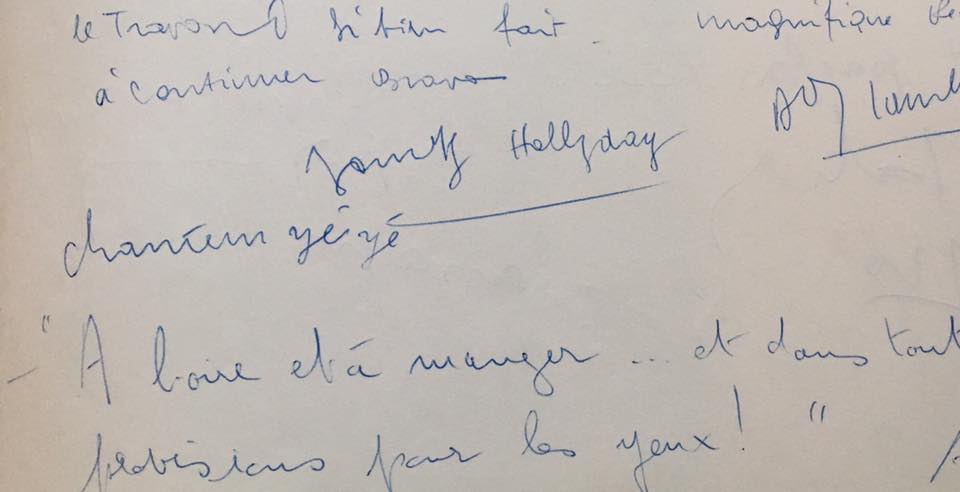 le Travail si bien fait.
magnifique
à continuer Bravo
Johnny Hallyday
chanteur yéyé
" A boire et à manger ... et dans tout
provisions pour les yeux ! "